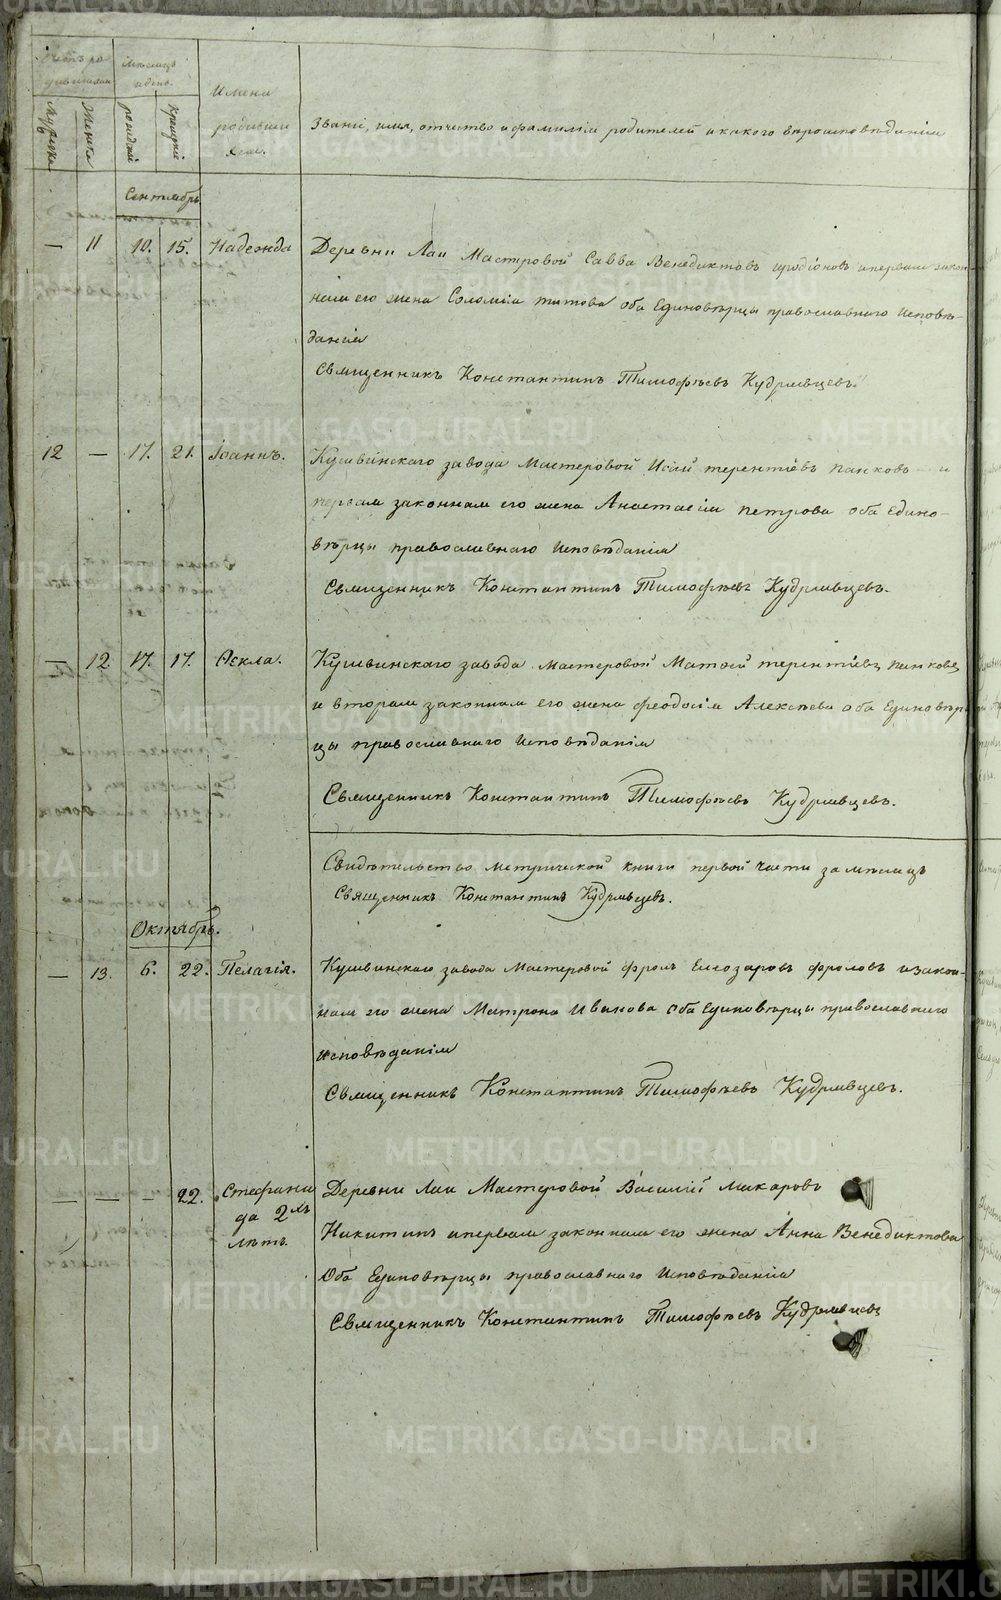 Счетъ ро
дившихся
Мѣсяцъ
и день.
Имена
родивши
хся.
Званіе, имя, отчество и фамилія родителей и какого вѣроисповѣданія
Мужска
Женска
рожденія
крещенія
Сентябрь
— 11 10. 15. Надежда Деревни Лаи Мастровой Савва Венедиктовъ иродіоновъ и первая закон-
ная его жена Соломія титова оба Единовѣрцы православнаго исповѣ-
данія
Священникъ Константинъ Тимофѣевъ Кудрявцевъ.
12 — 17. 21. Іоаннъ. Кушвинскаго завода Мастеровой Исай терентіевъ панковъ и
первая законная его жена Анастасія петрова оба Едино-
вѣрцы православнаго исповѣданія
Священникъ Константинъ Тимофѣевъ Кудрявцевъ.
— 12. 17. 17. Ѳекла. Кушвинскаго завода Мастеровой Матѳей терентіевъ панковъ
и вторая законная его жена феодосія Алексѣева оба Единовѣр-
цы православнаго исповѣданія
Священникъ Константинъ Тимофѣевъ Кудрявцевъ.
Свидѣтельство метрической книги первой части за мѣсяцъ
Священникъ Константинъ Кудрявцевъ.
Октябрь.
— 13. 6. 22. Пелагія. Кушвинскаго завода Мастеровой фролъ Елеозаровъ фроловъ и закон-
ная его жена Матрона Иванова оба Единовѣрцы православнаго
исповѣданія
Священникъ Константинъ Тимофѣевъ Кудрявцевъ.
— — — 22. Стефани Деревни Лаи Мастеровой Василій Макаровъ
да 2хъ Никитинъ и первая законная его жена Анна Венедиктова
лѣтъ.
Оба Единовѣрцы православнаго исповѣданія
Священникъ Константинъ Тимофѣевъ Кудрявцевъ
METRIKI.GASO-URAL.RU